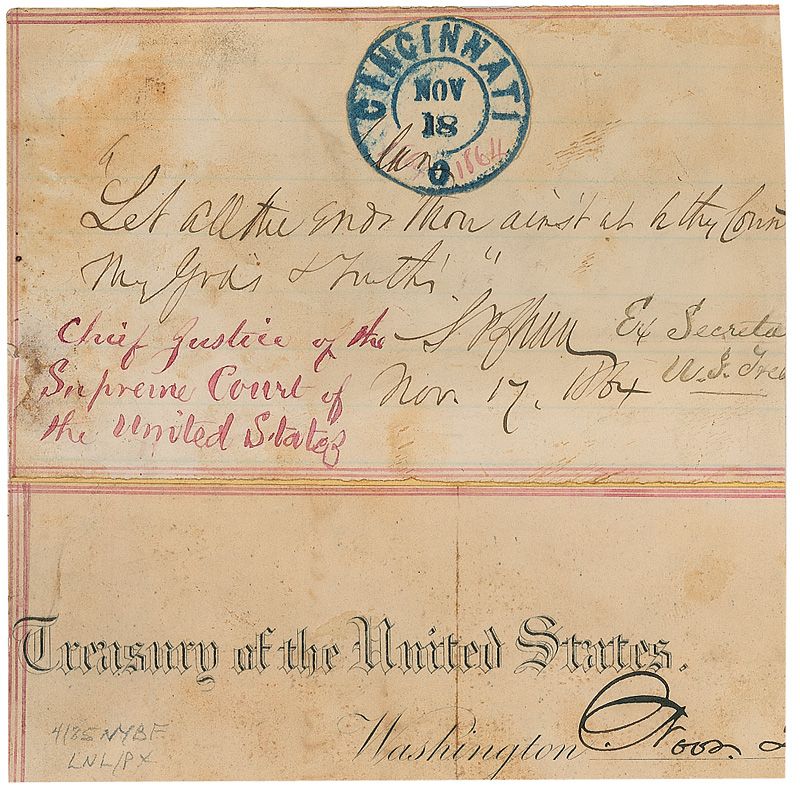 CINCINNATI
NOV
18
1864
"Let all the ends Thou aim'st at be thy Coun
My God's & Truth's"
Chief Justice of the
Ex Secreta
Supreme Court of
Nov. 17, 1864
U.S. Trea
the United States
Treasury of the United States.
Washington
4185 NYBF
LNL/PX